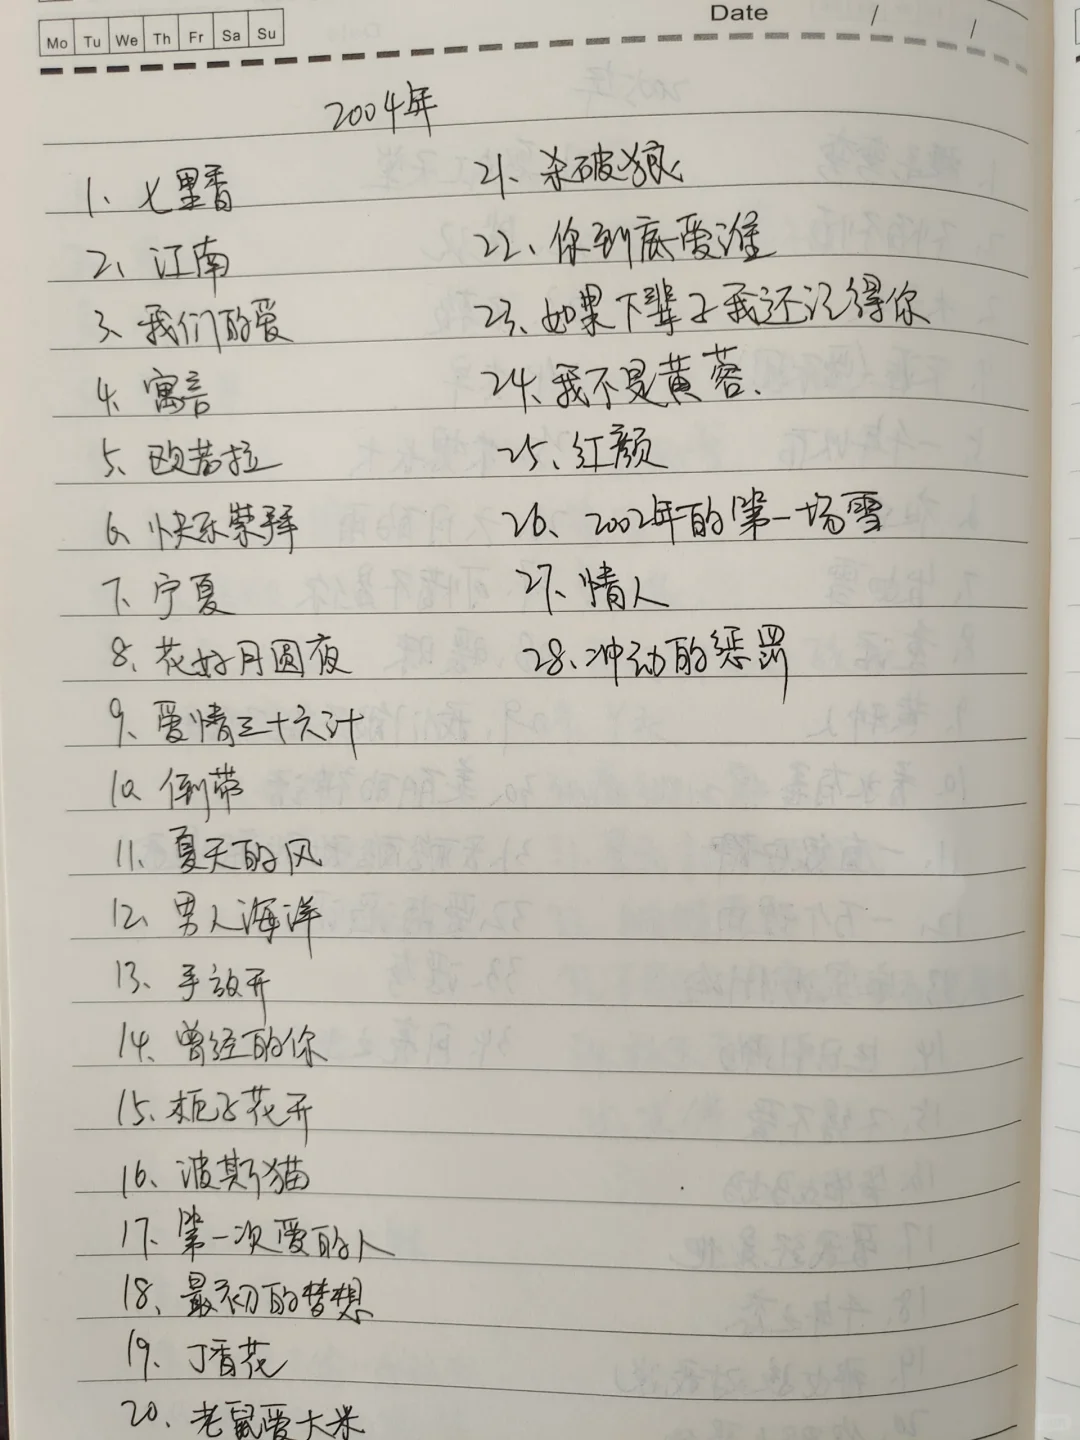 Mo Tu We Th Fr Sa Su
Date / /
2004年
1、七里香
2、江南
3、我们的爱
4、寓言
5、欧若拉
6、快乐崇拜
7、宁夏
8、花好月圆夜
9、爱情三十六计
10、倒带
11、夏天的风
12、男人海洋
13、手放开
14、曾经的你
15、栀子花开
16、波斯猫
17、第一次爱的人
18、最初的梦想
19、丁香花
20、老鼠爱大米
21、杀破狼
22、你到底爱谁
23、如果下辈子我还记得你
24、我不是黄蓉.
25、红颜
26、2002年的第一场雪
27、情人
28、冲动的惩罚